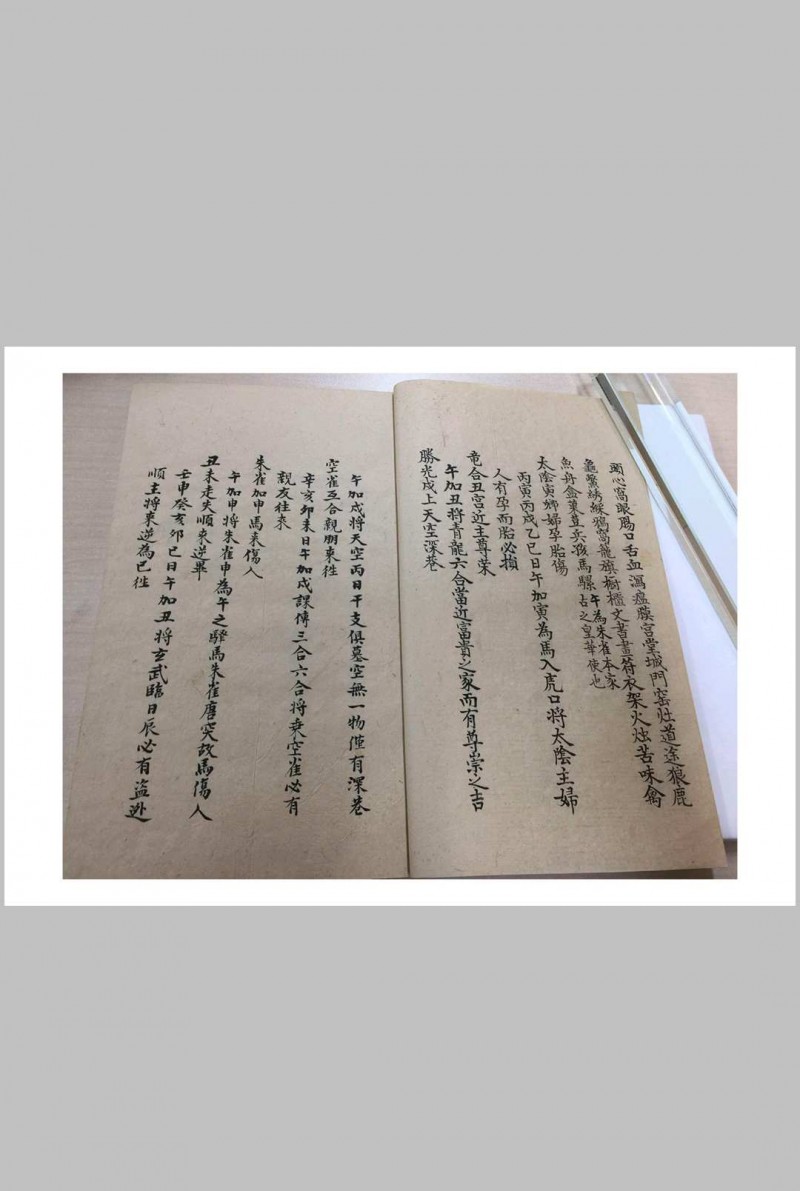 頭心窩眼腸口舌血瀉瘟膜宮堂城門窑灶道途獐鹿
龜鱉綉綵鴉窩龍旗櫥櫃文書畫符衣架火烛苦味禽
魚舟盒菓荳兵馬騾 午為朱雀本家占之皇華使也
太陰寅鄉婦孕胎傷
丙寅丙戌乙巳日午加寅為馬入虎口將太陰主婦
人有孕而胎必損
竜合丑宮近主尊荣
午加丑將青龍六合當近富貴之家而有尊崇之吉
勝光戌上天空深巷
午加戌將天空丙日干支俱墓空無一物僅有深巷
空雀互合親朋來徃
辛亥卯未日午加戌課傳三合六合將乗空雀必有
親友往来
朱雀加申馬来傷人
午加申將朱雀申為午之驛馬朱雀唐突故馬傷人
丑未走失順來逆畢
壬申癸亥卯巳日午加丑將玄武臨日辰必有盗逃
順主將來逆為已徃